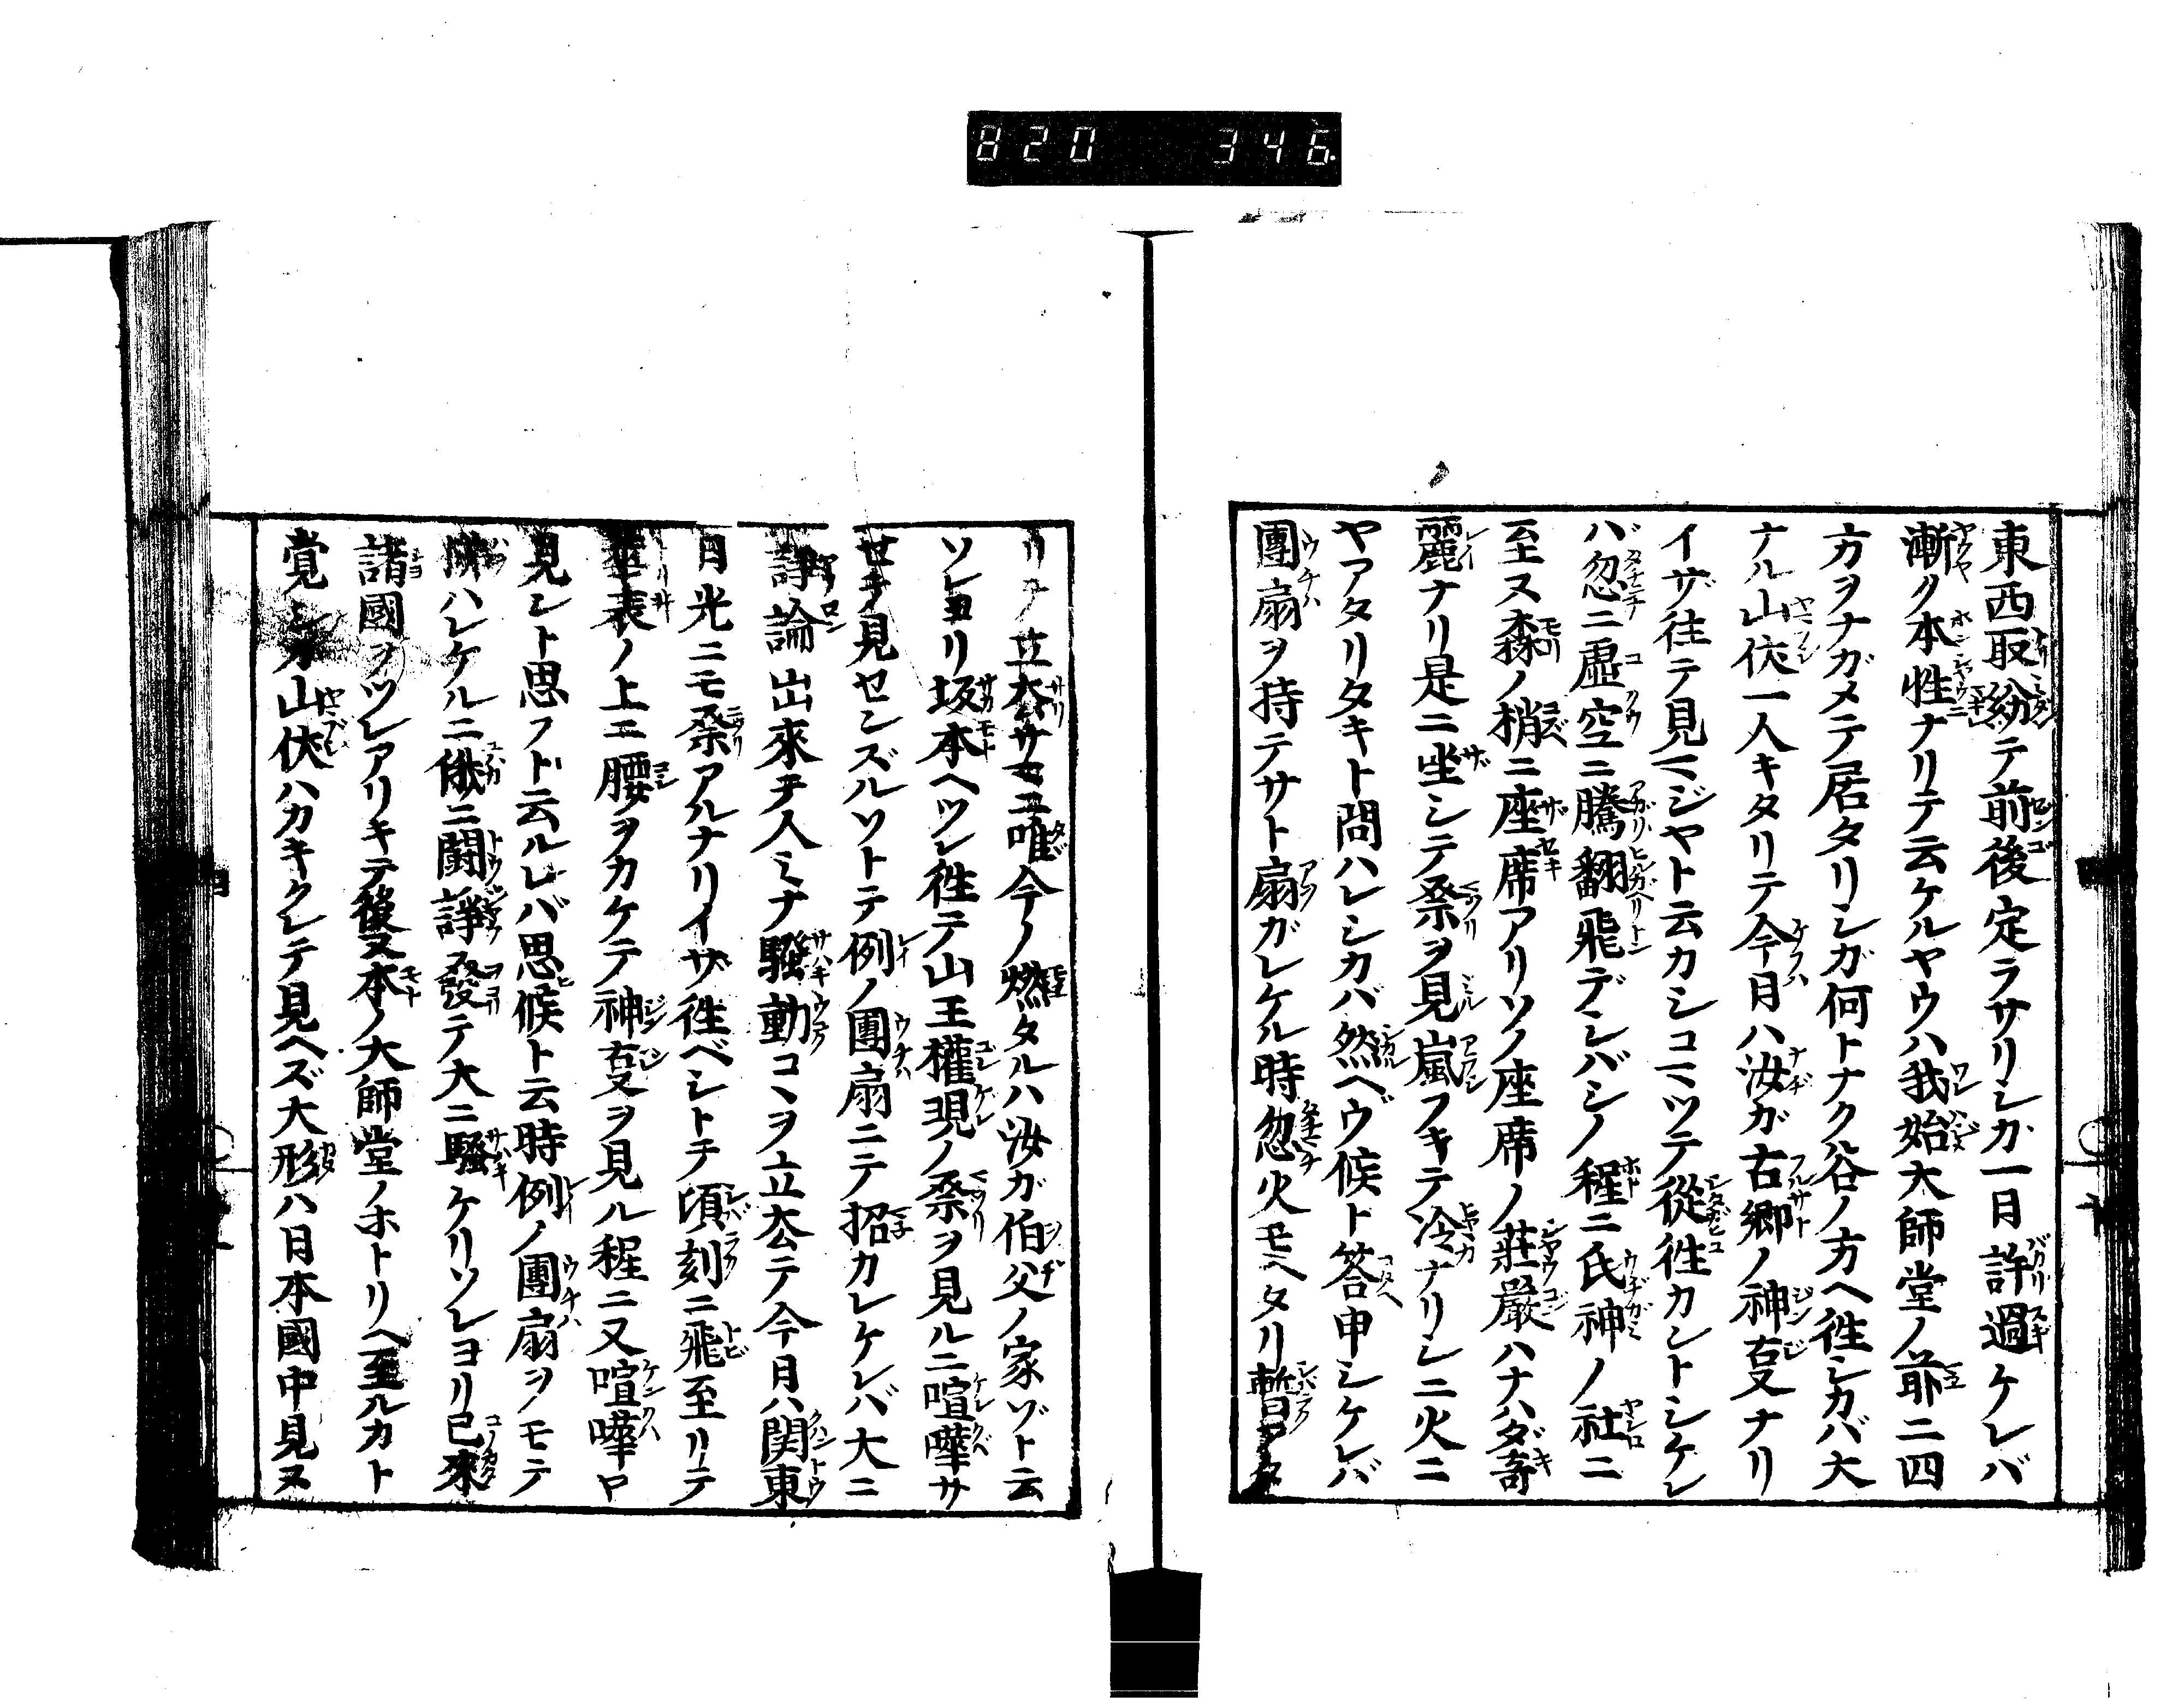 820 346
東西取紛テ前後定ラサリシカ一日許過ケレバ
漸ク本性ナリテ云ケルヤウハ我始大師堂ノ前ニ四
方ヲナガメテ居タリシガ何トナク谷ノ方ヘ徃シカバ大
ナル山伏一人キタリテ今日ハ汝ガ古郷ノ神㕝ナリ
イザ徃テ見マジヤト云カシコマツテ從徃カントシケレ
バ忽ニ虚空ニ騰翻飛デシバシノ程ニ氏神ノ社ニ
至ヌ森ノ梢ニ座席アリソノ座席ノ莊嚴ハナハダ奇
麗ナリ是ニ坐シテ祭ヲ見嵐フキテ冷ナリシニ火ニ
ヤアタリタキト問ハレシカバ然ヘウ候ト答申シケレバ
團扇ヲ持テサト扇ガレケル時忽火モヘタリ暫アタ
リテ立去サマニ唯今ノ燃タルハ汝ガ伯父ノ家ゾト云
ソレヨリ坂本ヘツレ徃テ山王權現ノ祭ヲ見ルニ喧嘩サ
セテ見センズルソトテ例ノ團扇ニテ招カレケレバ大ニ
諍論出來テ人ミナ騒動コヽヲ立去テ今日ハ関東
日光ニモ祭アルナリイザ徃ベシトテ頃刻ニ飛至リテ
華表ノ上ニ腰ヲカケテ神㕝ヲ見ル程ニ又喧嘩ロ
見シト思フト云ルレバ思候ト云時例ノ團扇ヲモテ
ハレケルニ俄ニ闘諍發テ大ニ騒ケリソレヨリ已來
諸國ヲツレアリキテ後又本ノ大師堂ノホトリヘ至ルカト
覚シ山伏ハカキクレテ見ヘズ大形ハ日本國中見ヌ